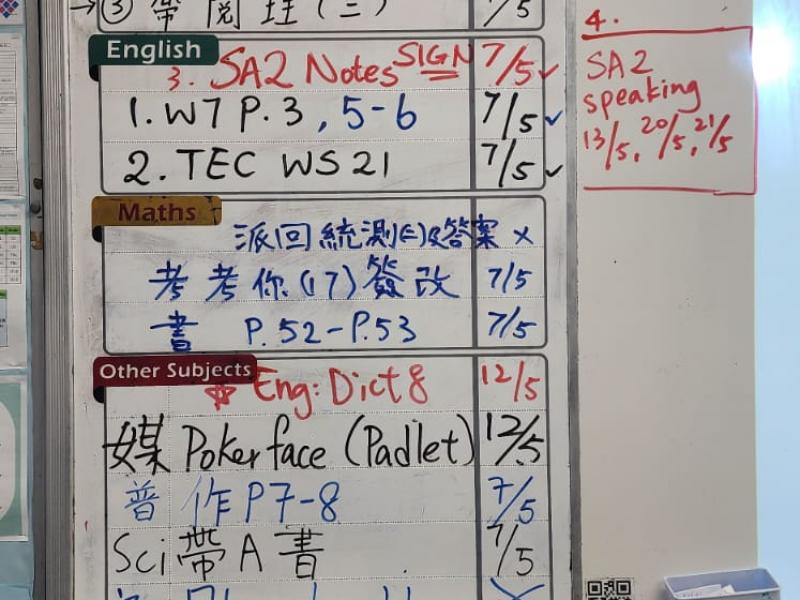 →③ 帶 閱 理 (三) 7/5
English
3. SA2 Notes SIGN 7/5 ✓
1. W7 P.3 , 5-6 7/5 ✓
2. TEC WS 21 7/5 ✓
Maths
派回統測(三)及答案 ×
考考你(17)簽改 7/5
書 P.52-P.53 7/5
Other Subjects
Eng: Dict 8 12/5
媒 Poker face (Padlet) 12/5
普 作 P7-8 7/5
Sci 帶 A 書 7/5
4.
SA2
speaking
13/5, 20/5, 21/5